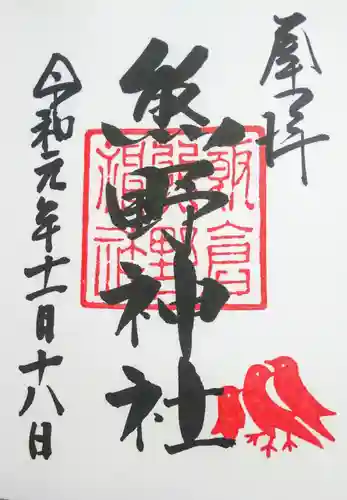 奉拝
熊野神社
朝倉
熊野
神社
令和元年十一月十八日